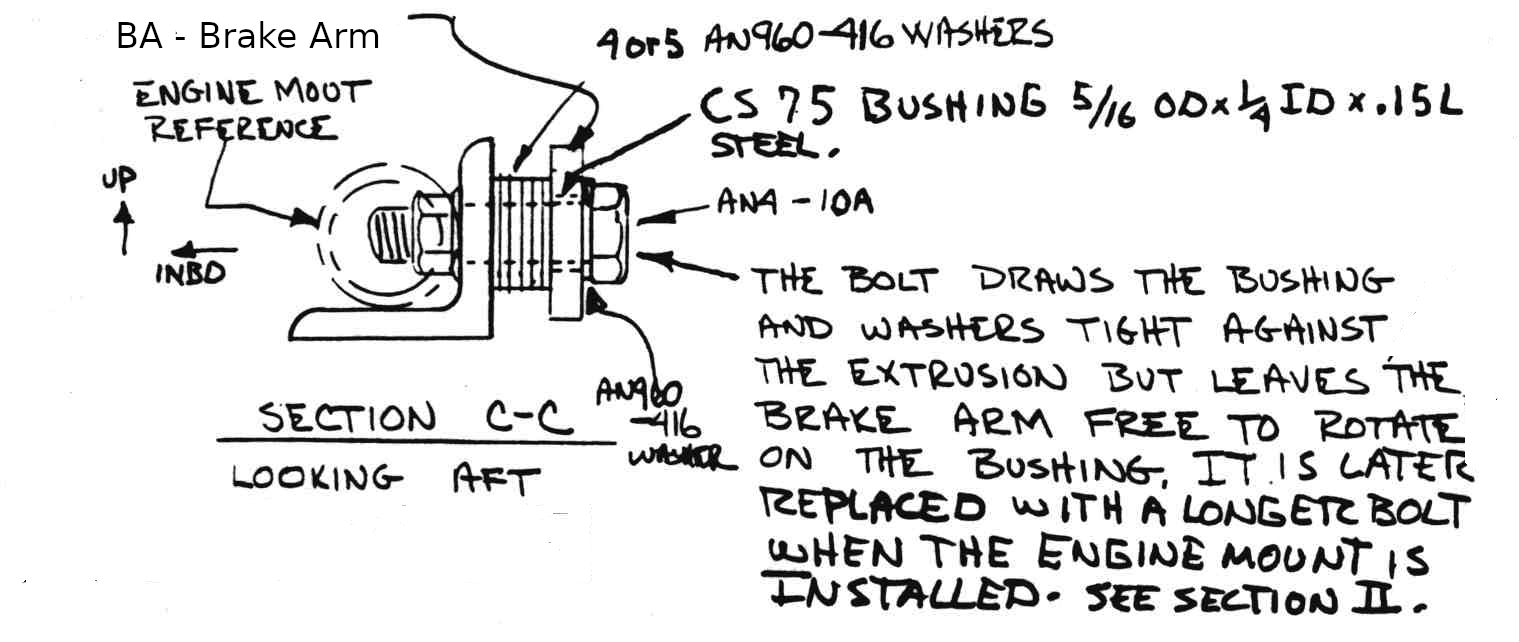 BA - Brake Arm
4 or 5 AN960-416 WASHERS
ENGINE MOUT
REFERENCE
CS 75 BUSHING 5/16 OD x 1/4 ID x .15 L
STEEL.
UP
AN4 - 10A
INBD
THE BOLT DRAWS THE BUSHING
AND WASHERS TIGHT AGAINST
THE EXTRUSION BUT LEAVES THE
BRAKE ARM FREE TO ROTATE
ON THE BUSHING, IT IS LATER
REPLACED WITH A LONGER BOLT
WHEN THE ENGINE MOUNT IS
INSTALLED. SEE SECTION II.
AN960
-416
WASHER
SECTION C-C
LOOKING AFT